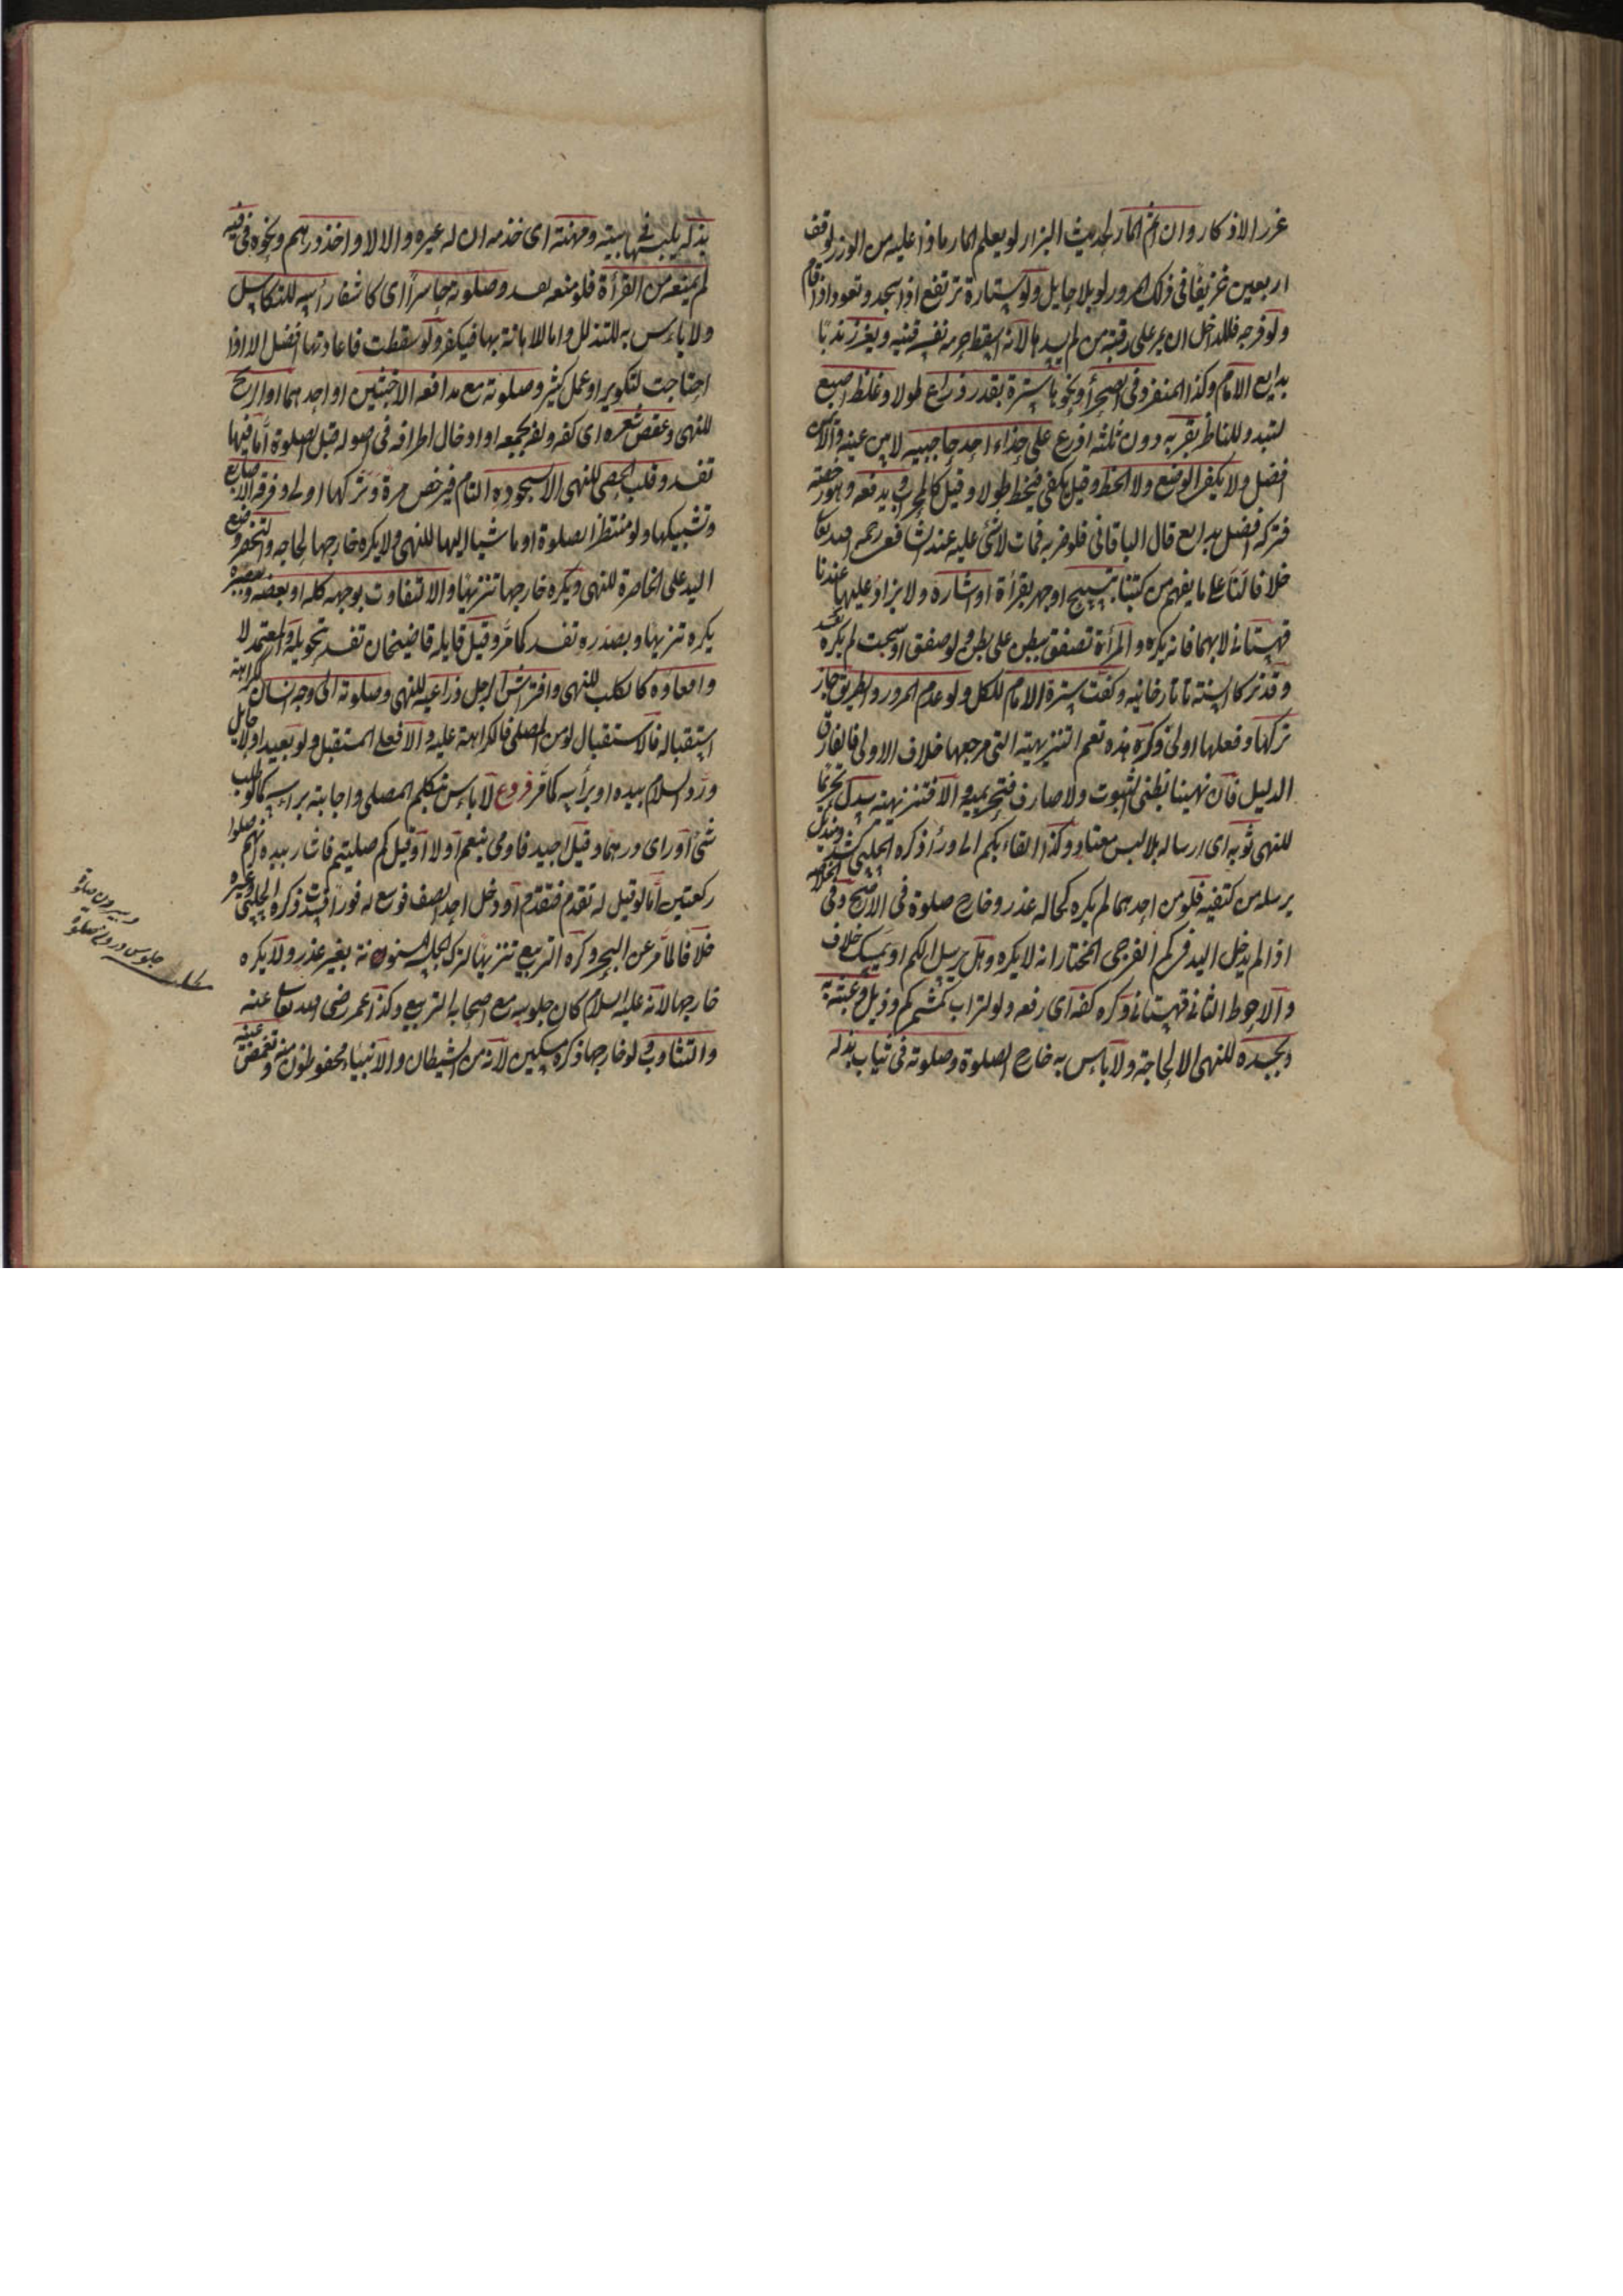 غرر الاذكار وان اثم المار لحديث البزار لو يعلم المار ماذا عليه من الوزر لوقف
اربعين خريفا فى ذلك المرور لو بلا حايل ولو ستارة ترتفع اذا سجد وتعود اذا قام
ولو فرجه فللداخل ان يمر على رقبة من لم يسدها لانه اسقط حرمة نفسه قنيه ويغرز ندبا
بدايع الامام وكذا المنفرد فى الصحرأ ونحوها سترة بقدر ذراع طولا وغلظ اصبع
لتبدو للناظر بقربه دون ثلثه اذرع على حذاء احد حاجبيه لا بين عينيه والايمن
افضل ولا يكفى الوضع ولا الخط وقيل يكفى فيخط طولا وقيل كالمحراب ويدفعه وهو رخصة
فتركه افضل بدايع قال الباقانى فلو ضربه فمات لا شئ عليه عند الشافعى رحمه الله تعا
خلافا لنا على ما يفهم من كتبنا بتسبيح او جهر بقرأة او اشارة ولا يزاد عليها عندنا
قهستانى لا بهما فانه يكره والمرأة تصفق ببطن على بطن ولو صفق او سبحت لم يكره
وقد تركا السنة تاتارخانيه وكفت سترة الامام للكل ولو عدم المرور والطريق جاز
تركها وفعلها اولى وكره هذه تعم التنزيهية التى مرجعها خلاف الاولى فالفارق
الدليل فان نهيا ظنى الثبوت ولا صارف فتحريمية والا فتنزيهية سدل تحريما
للنهى ثوبه اى ارساله بلا لبس معتاد وكذا القباء بكم الى ورأ ذكره الحلبى كشد ومنديل
يرسله من كتفيه فلو من احدهما لم يكره كحالة عذر وخارج صلوة فى الاصح وفى الخلاصه
اذا لم يدخل اليد فى كم الفرجى المختار انه لا يكره وهل يرسل الكم او يمسك خلاف
والاحوط الثانى قهستانى وكره كفه اى رفعه ولو لتراب كمشمر كم وذيل وعبثه به
وبجسده للنهى الا لحاجة ولا باس به خارج الصلوة وصلوته فى ثياب بذله
بذله يلبسها فى بيته ومهنة اى خدمه ان له غيره والا لا واخذ درهم ونحوه فى فيه
لم يمنعه من القرأة فلو منعه تفسد وصلوته حاسرا اى كاشفا رأسه للتكاسل
ولا باس به للتذلل واما للاهانة بها فيكفر ولو سقطت فاعادتها افضل الا اذا
احتاجت لتكوير او عمل كثير وصلوته مع مدافعه الاخبثين او احدهما او الريح
للنهى وعقص شعره اى كفه ولفه بجمعه او ادخال اطرافه فى اصوله قبل الصلوة اما فيها
تفسد وقلب الحصى للنهى الا لسجوده التام فيرخص مرة وتركها اولى وفرقعة الاصابع
وتشبيكها ولو منتظرا لصلوة او ماشيا اليها للنهى ولا يكره خارجها لحاجه والتخصر وضع
اليد على الخاصرة للنهى ويكره خارجها تنزيها والالتفات بوجهه كله او بعضه وببصره
يكره تنزيها وبصدره تفسد كما مر وقيل قايله قاضيخان تفسد بتحويله والمعتمد لا
واقعاوه كالكلب للنهى وافتراش الرجل ذراعيه للنهى وصلوته الى وجه انسان ككراهة
استقباله فالاستقبال لو من المصلى فالكراهة عليه والا فعلى المستقبل ولو بعيدا ولا حايل
ورد السلام بيده او برأسه كما مر فروع لا باس بتكليم المصلى واجابته برأسه كما لو طلب
شئ او راى درهما وقيل اجيد فاومى بنعم او لا او قيل كم صليتم فاشار بيده انهم صلوا
ركعتين اما لو قيل له تقدم فتقدم او دخل احد الصف فوسع له فورا فسدت ذكره الحلبى وغيره
خلافا لما مر عن البحر وكره التربيع تنزيها لترك الجلسة المسنونة بغير عذر ولا يكره
خارجها لانه عليه السلام كان جلوسه مع اصحابه التربيع وكذا عمر رضى الله تعا عنه
والتثاوب ولو خارجها ذكره مسكين لانه من الشيطان والانبياء محفوظون منه وتغميض عينيه
وبيرون صلوة
جلوس در